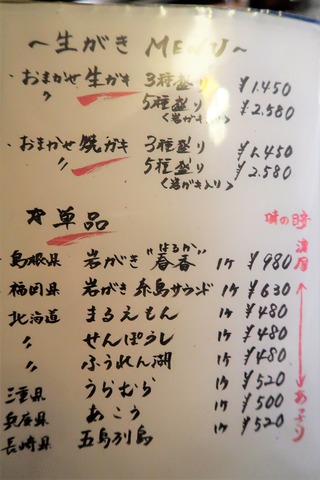 ~生がき MENU~
・おまかせ 生ガキ 3種盛り ¥1.450
〃 5種盛り ¥2.580
<岩がき入り>
・おまかせ 焼ガキ 3種盛り ¥1.450
〃 5種盛り ¥2.580
<岩ガキ入り>
単品
味の時
濃厚
島根県 岩がき "春香" 1ケ ¥980
はるか
福岡県 岩がき 糸島サウンド 1ケ ¥630
北海道 まるえもん 1ケ ¥480
〃 せんぽうし 1ケ ¥480
〃 ふうれん湖 1ケ ¥480
三重県 うらむら 1ケ ¥520
兵庫県 あこう 1ケ ¥500
長崎県 五島列島 1ケ ¥520
あっさり